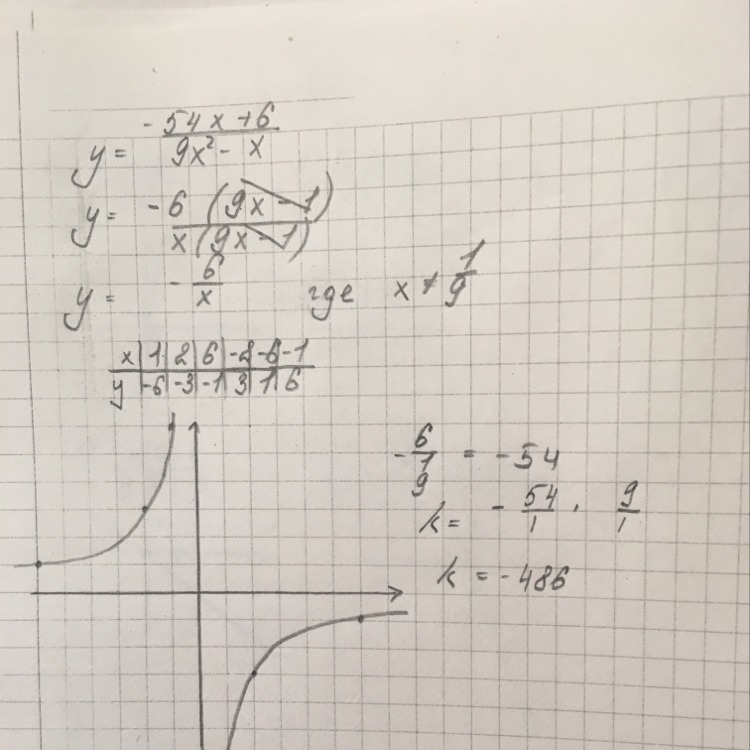 y = (-54x+6)/(9x² - x)
y = -6(9x-1)/x(9x-1)
y = -6/x где x ≠ 1/9
x|1|2|6|-2|-6|-1
y|-6|-3|-1|3|1|6
-6/(1/9) = -54
k = -54/1 · 9/1
k = -486